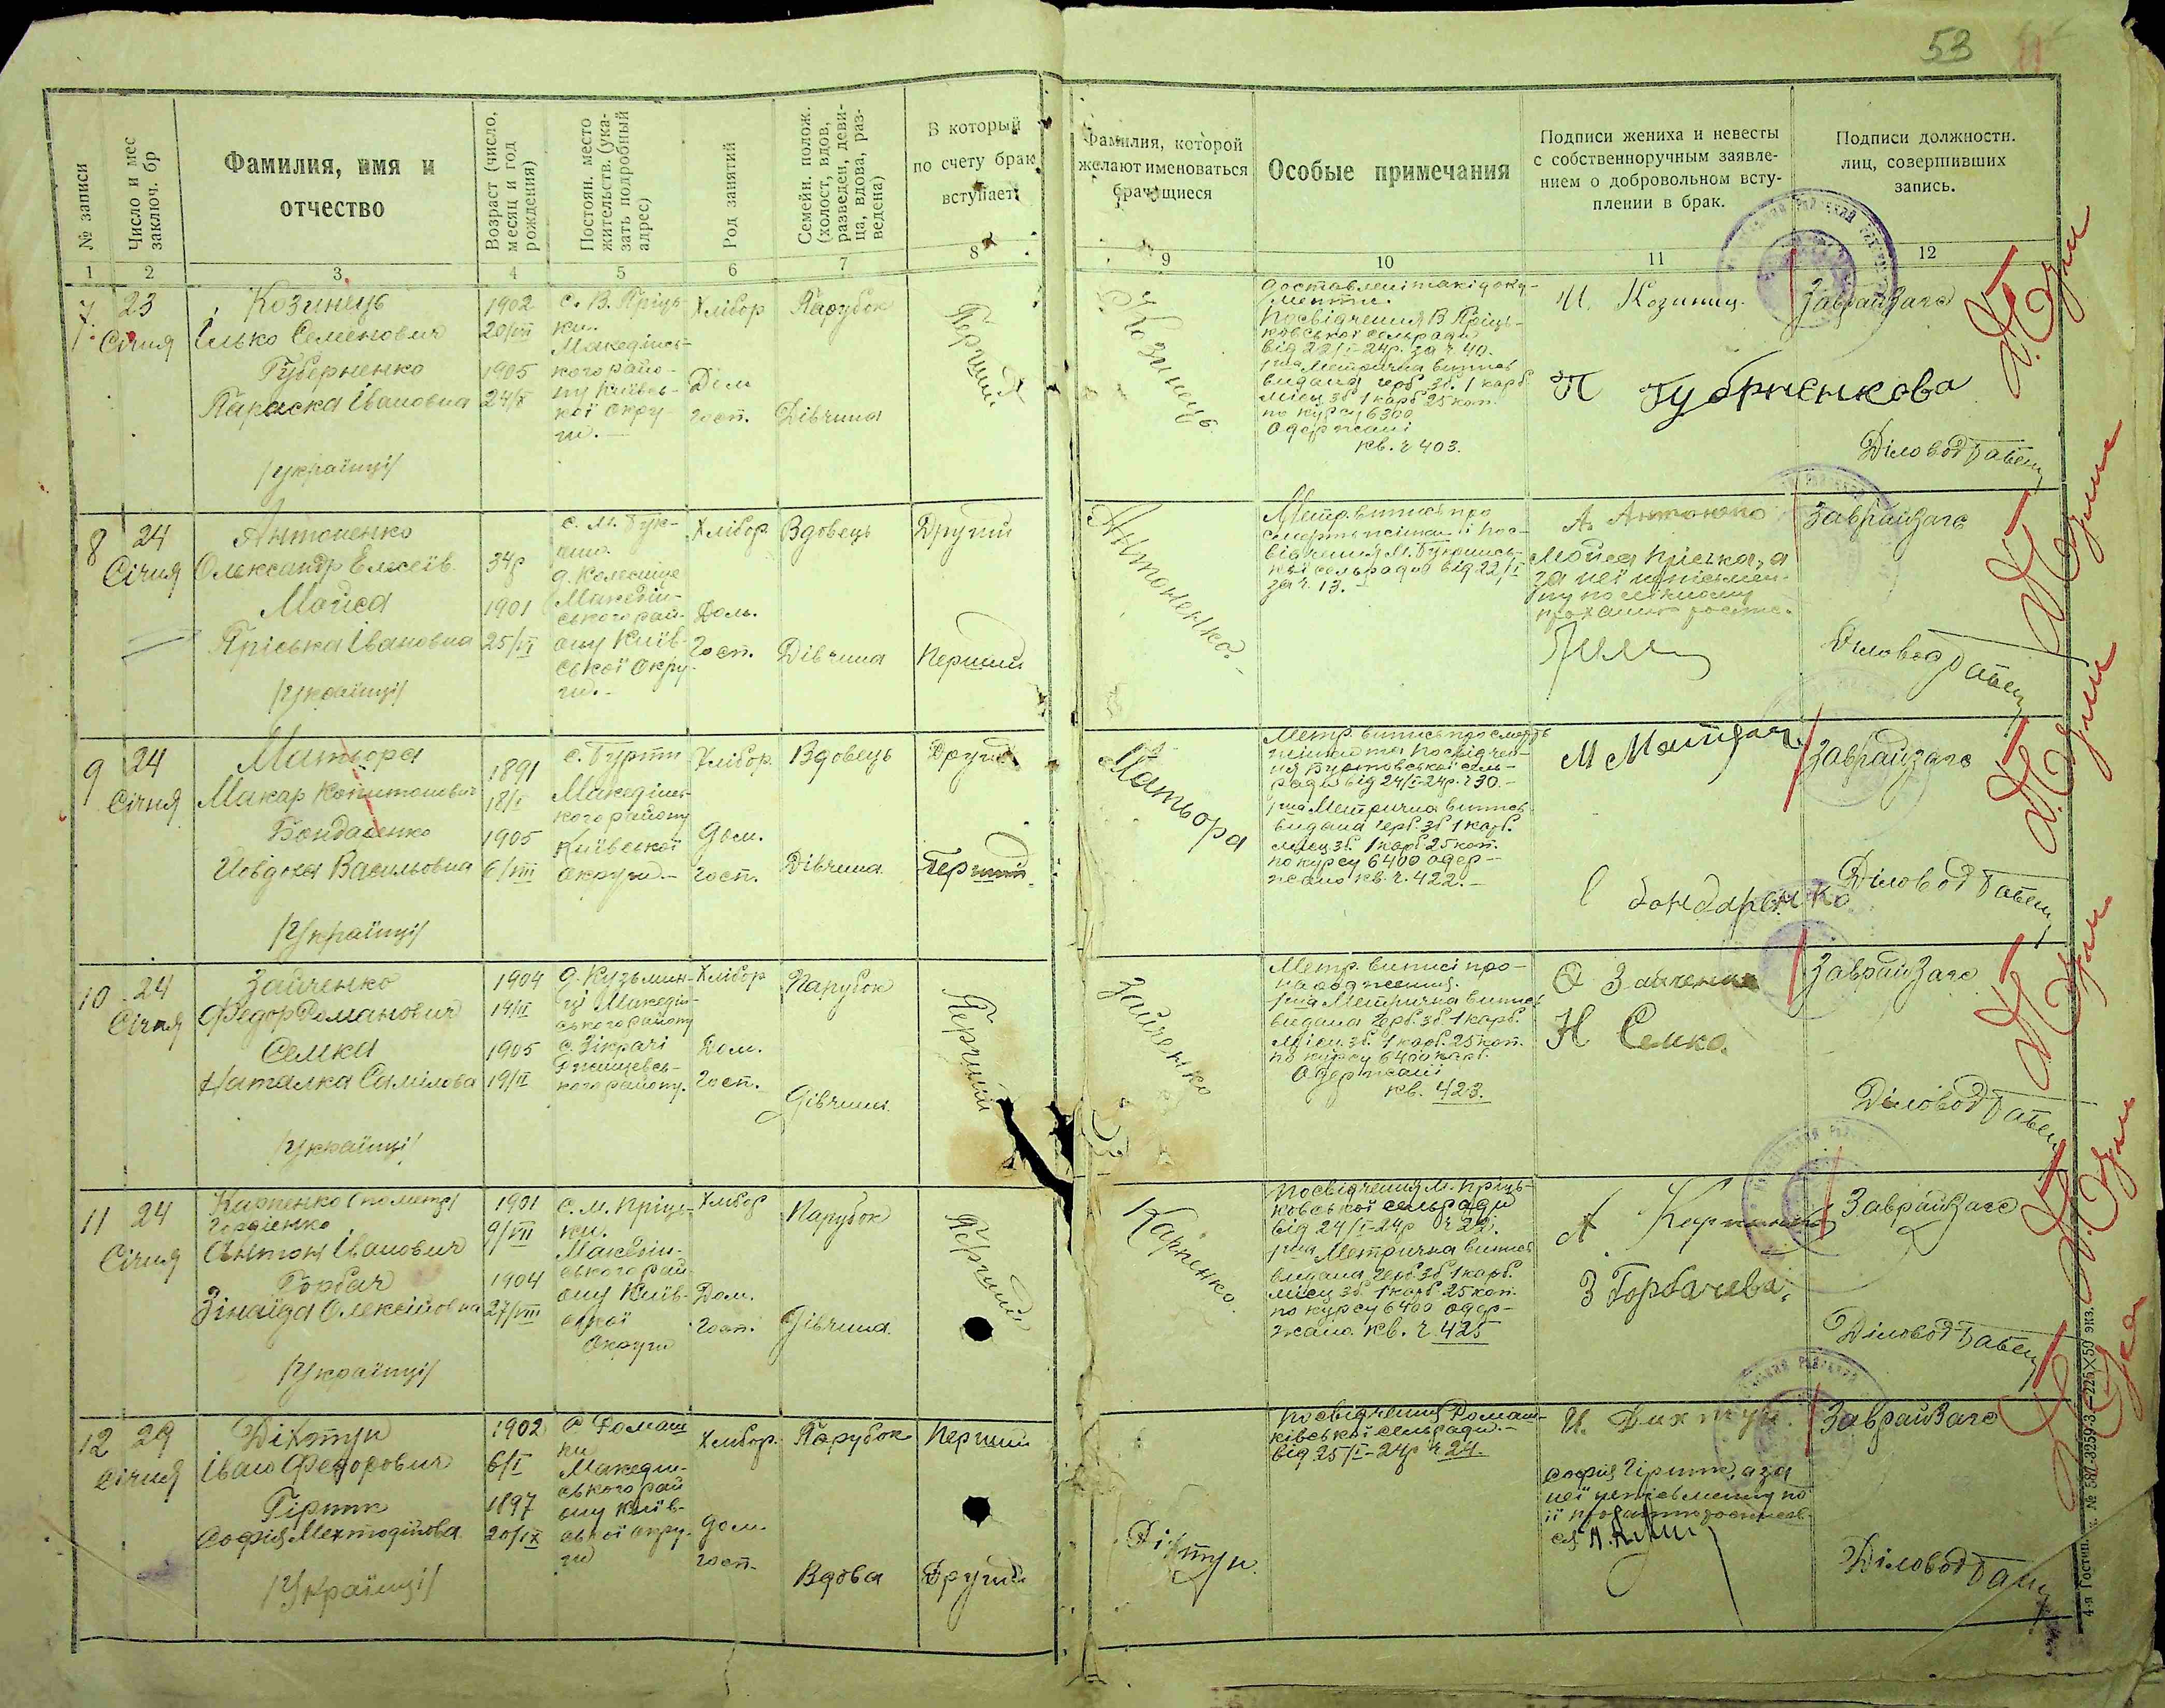 53
№ записи
Число и мес
заключ. бр
Фамилия, имя и
отчество
Возраст (число,
месяц и год
рождения)
Постоян. место
жительств. (ука-
зать подробный
адрес)
Род занятий
Семейн. полож.
(холост, вдов,
разведен, деви-
ца, вдова, раз-
ведена)
В который
по счету брак
вступает
Фамилия, которой
желают именоваться
брачущиеся
Особые примечания
Подписи жениха и невесты
с собственноручным заявле-
нием о добровольном всту-
плении в брак.
Подписи должности.
лиц, совершивших
запись.
1 2 3 4 5 6 7 8 9 10 11 12
7.
23
Січня
Козинець
Ілько Семенович
Губерненко
Параска Івановна
/Українці/
1902
20/VII
1905
24/X
с. В. Пріць-
ки.
Македонсь-
кого райо-
ну Київсь-
кої окру-
ги.
Хлібор
Дом
госп.
Парубок
Дівчина
Перший
Козинець
Посвідчення В Пріць-
ковської сельради
від 22/I-24р. за ч. 40.
1 ша Метрична виписъ
видана герб. зб. 1 карб
місц зб 1 карб 25 коп.
по курсу 6300
одержані
кв. ч 403.
И. Козинец
П Губрненкова
ЗаврайЗагс
Діловод
8
24
Січня
Антоненко
Олександр Елисеїв.
Мойса
Пріська Івановна
/Українці/
34р
1901
25/VI
с. М. Бук-
рин.
Македон-
ського рай-
ону Київ-
ської окру-
ги.-
Хлібор
Дом.
Госп.
Вдовець
Дівчина
Другий
Перший
Антоненко.-
Метр. виписъ про
смерть жінки і пос-
відчення М. Букринсь-
кої сельради від 22/I
за ч. 13.-
А. Антонено
Мойса Пріська, а
за неї неписьмен-
ну по
ЗаврайЗагс
Діловод
9
24
Січня
Матьора
Макар Капитонович
Бондаренко
Йовдоха Васильовна
/Українці/
1891
18/I
1905
6/VIII
с. Бурти
Македонсь-
кого району
Київської
округи.-
Хлібор
Дом.
госп.
Вдовець
Дівчина
Другий
Перший
Матьора
Метр. виписъ про смерть
жінки та посвідчен-
ня Буртовської сель-
ради від 24/I-24р. ч 30.-
1 ша Метрична виписъ
видана герб. зб 1 карб.
місц зб. 1 карб 25 коп.
по курсу 6400 одер-
жано кв. ч. 422.-
М Матьора
бондаренко
ЗаврайЗагс
Діловод
10
24
Січня
Зайченко
Федор Романович
Семка
Наталка Самілова
/Українці/
1904
14/II
1905
19/II
д. Кузьмин-
ці Македон-
ського району
с. Зікрачі
Ржищевсь-
кого району.
Хлібор
Дом.
Госп.
Парубок
Дівчина
Перший
Зайченко
Метр. виписі про-
народження.
1 ша Метрична виписъ
видана герб. зб. 1 карб.
місц. зб. 1 карб. 25 коп.
по курсу 6400 карб.
Одержані
кв. 423.
Ѳ Зайченко
Н Семка.
ЗаврайЗагс
Діловод
11
24
Січня
Карпенко (по метр)
Гордіенко
Антон Іванович
Горбач
Зінаїда Олексійовна
/Українці/
1901
9/VII
1904
27/VIII
с. М. Пріць-
ки.
Македон-
ського рай-
ону Київ-
ської
Округи
Хлібор
Дом.
Госп.
Парубок
Дівчина.
Перший
Карпенко.
Посвідчення М. Пріць-
ковської сельради
від 24/I-24р ч 22.
1 ша Метрична виписъ
видана герб зб 1 карб.
місц зб. 1 карб. 25 коп.
по курсу 6400 одер-
жано. кв. ч. 425
А Карпенко
З Горбачева.
ЗаврайЗагс
Діловод
12
29
Січня
Діхтяр
Іван Федорович
Гірник
Софія Мехтодійова
/Українці/
1902
6/I
1897
20/IX
с Ромаш
ки
Македон-
ського рай
ону Київ-
ської окру-
ги
Хлібор.
дом.
госп.
Парубок
Вдова
Перший
Другий
Діхтяр.
Посвідчення Ромаш-
ківської сельради.-
від 25/I-24р ч 24.
И. Дихтяр.
Софія Гірник, а за
неї неписьменну по
її
ЗаврайЗагс
Діловод